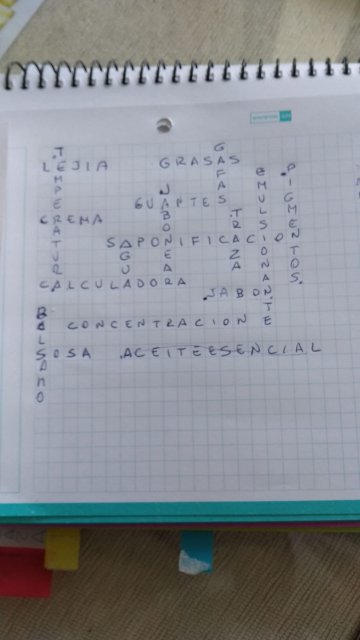 TEMPERATURA
LEJIA GRASAS
GAFAS
EMULSIONANTE
PIGMENTOS
JABONERA
GUANTES
CREMA
TRAZA
SAPONIFICACION
AGUA
CALCULADORA
JABON
BALSAMO
CONCENTRACION
SOSA ACEITEESENCIAL